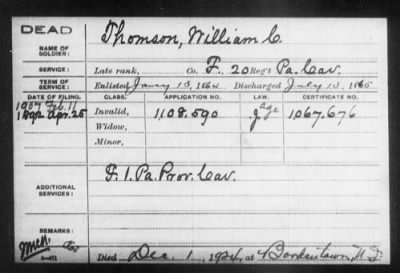 DEAD
NAME OF SOLDIER: Thomson, William C.
SERVICE: Late rank, Co. F, 20 Reg't Pa. Cav.
TERM OF SERVICE: Enlisted Jany 13, 1864 Discharged July 13, 1865
DATE OF FILING. CLASS. APPLICATION NO. LAW. CERTIFICATE NO.
1907 Feb. 11 Age
1892 Apr. 25 Invalid, 1108.590 1067.676
Widow,
Minor,
ADDITIONAL SERVICES: F. 1. Pa. Prov. Cav.
REMARKS:
Died Dec. 1, 1924, at